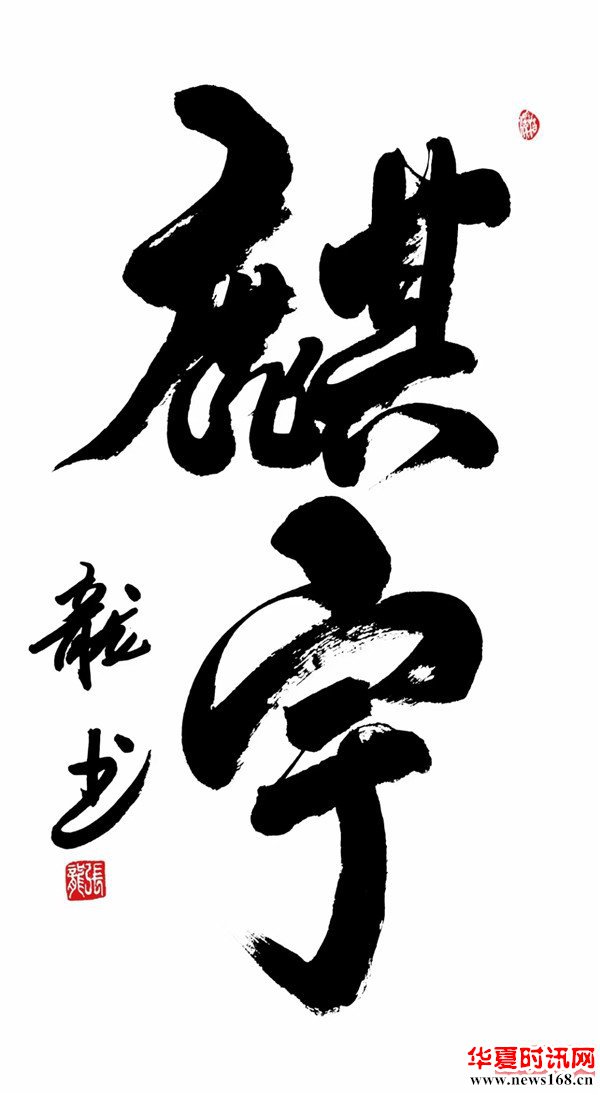 麒宇
龍书
張龍
华夏时讯网
www.news168.cn